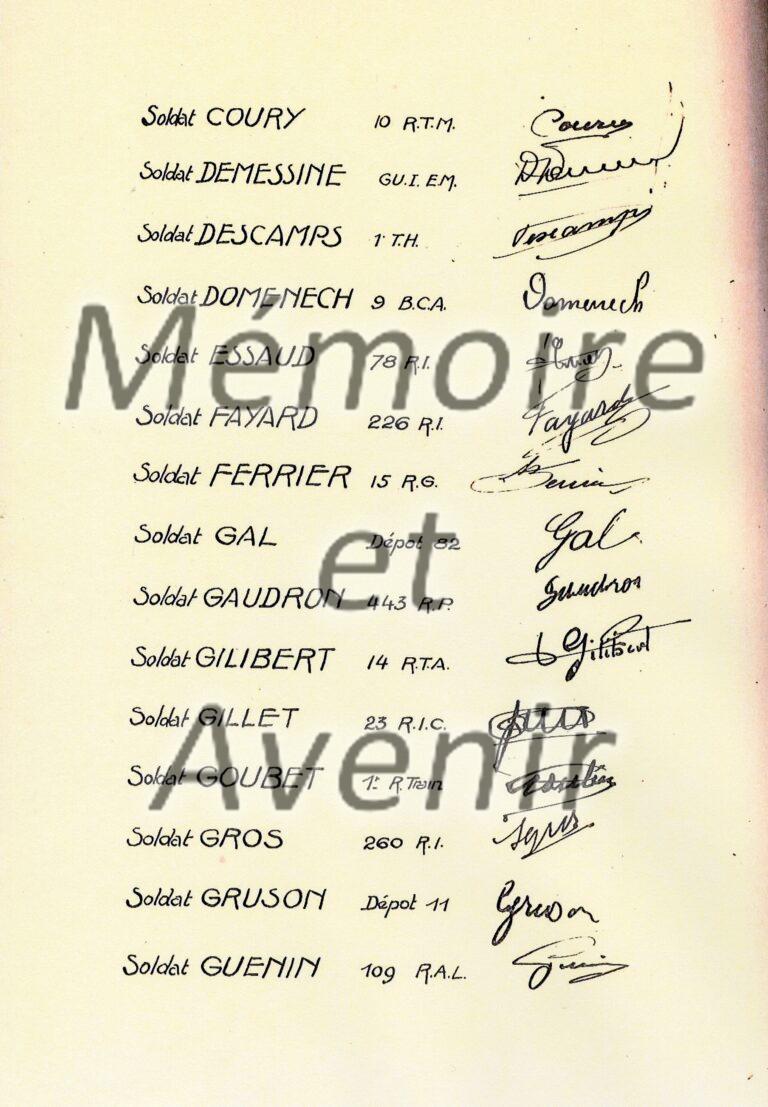 Soldat COURY 10 R.T.M. Coury
Soldat DEMESSINE GU.I.EM.
Soldat DESCAMPS 1 T.H. Descamps
Soldat DOMENECH 9 B.C.A. Domenech
Mémoire
Soldat ESSAUD 78 R.I.
Soldat FAYARD 226 R.I. Fayard
Soldat FERRIER 15 R.G.
Soldat GAL Dépot 82 Gal
et
Soldat GAUDRON 443 R.P. Gaudron
Soldat GILIBERT 14 R.T.A. Gilibert
Soldat GILLET 23 R.I.C.
Avenir
Soldat GOUBET 1: R.Train
Soldat GROS 260 R.I.
Soldat GRUSON Dépot 11 Gruson
Soldat GUENIN 109 R.A.L.